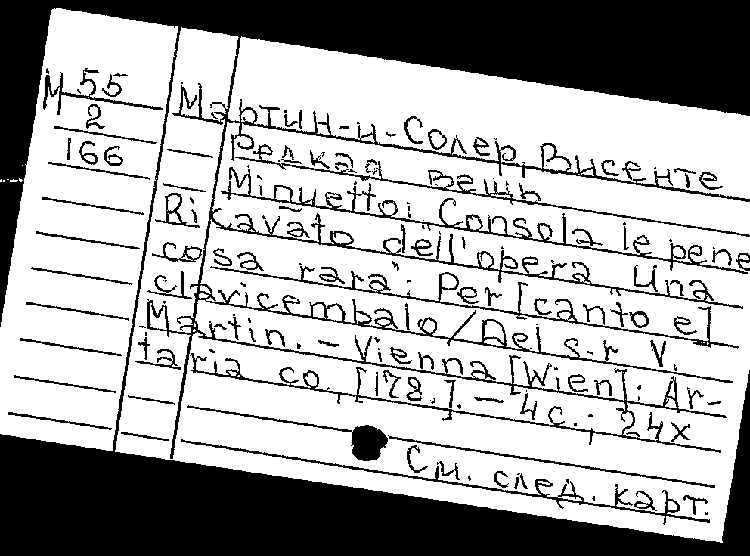 М 55
2
166
Мартин-и-Солер, Висенте
Редкая вещь
Minuetto: Consola le pene
Ricavato dell'opera "Una
cosa rara": Per [canto e]
clavicembalo / Del s-r V.
Martin. – Vienna [Wien]: Ar-
taria co., [178.]. – 4 с.; 24x
См. след. карт.